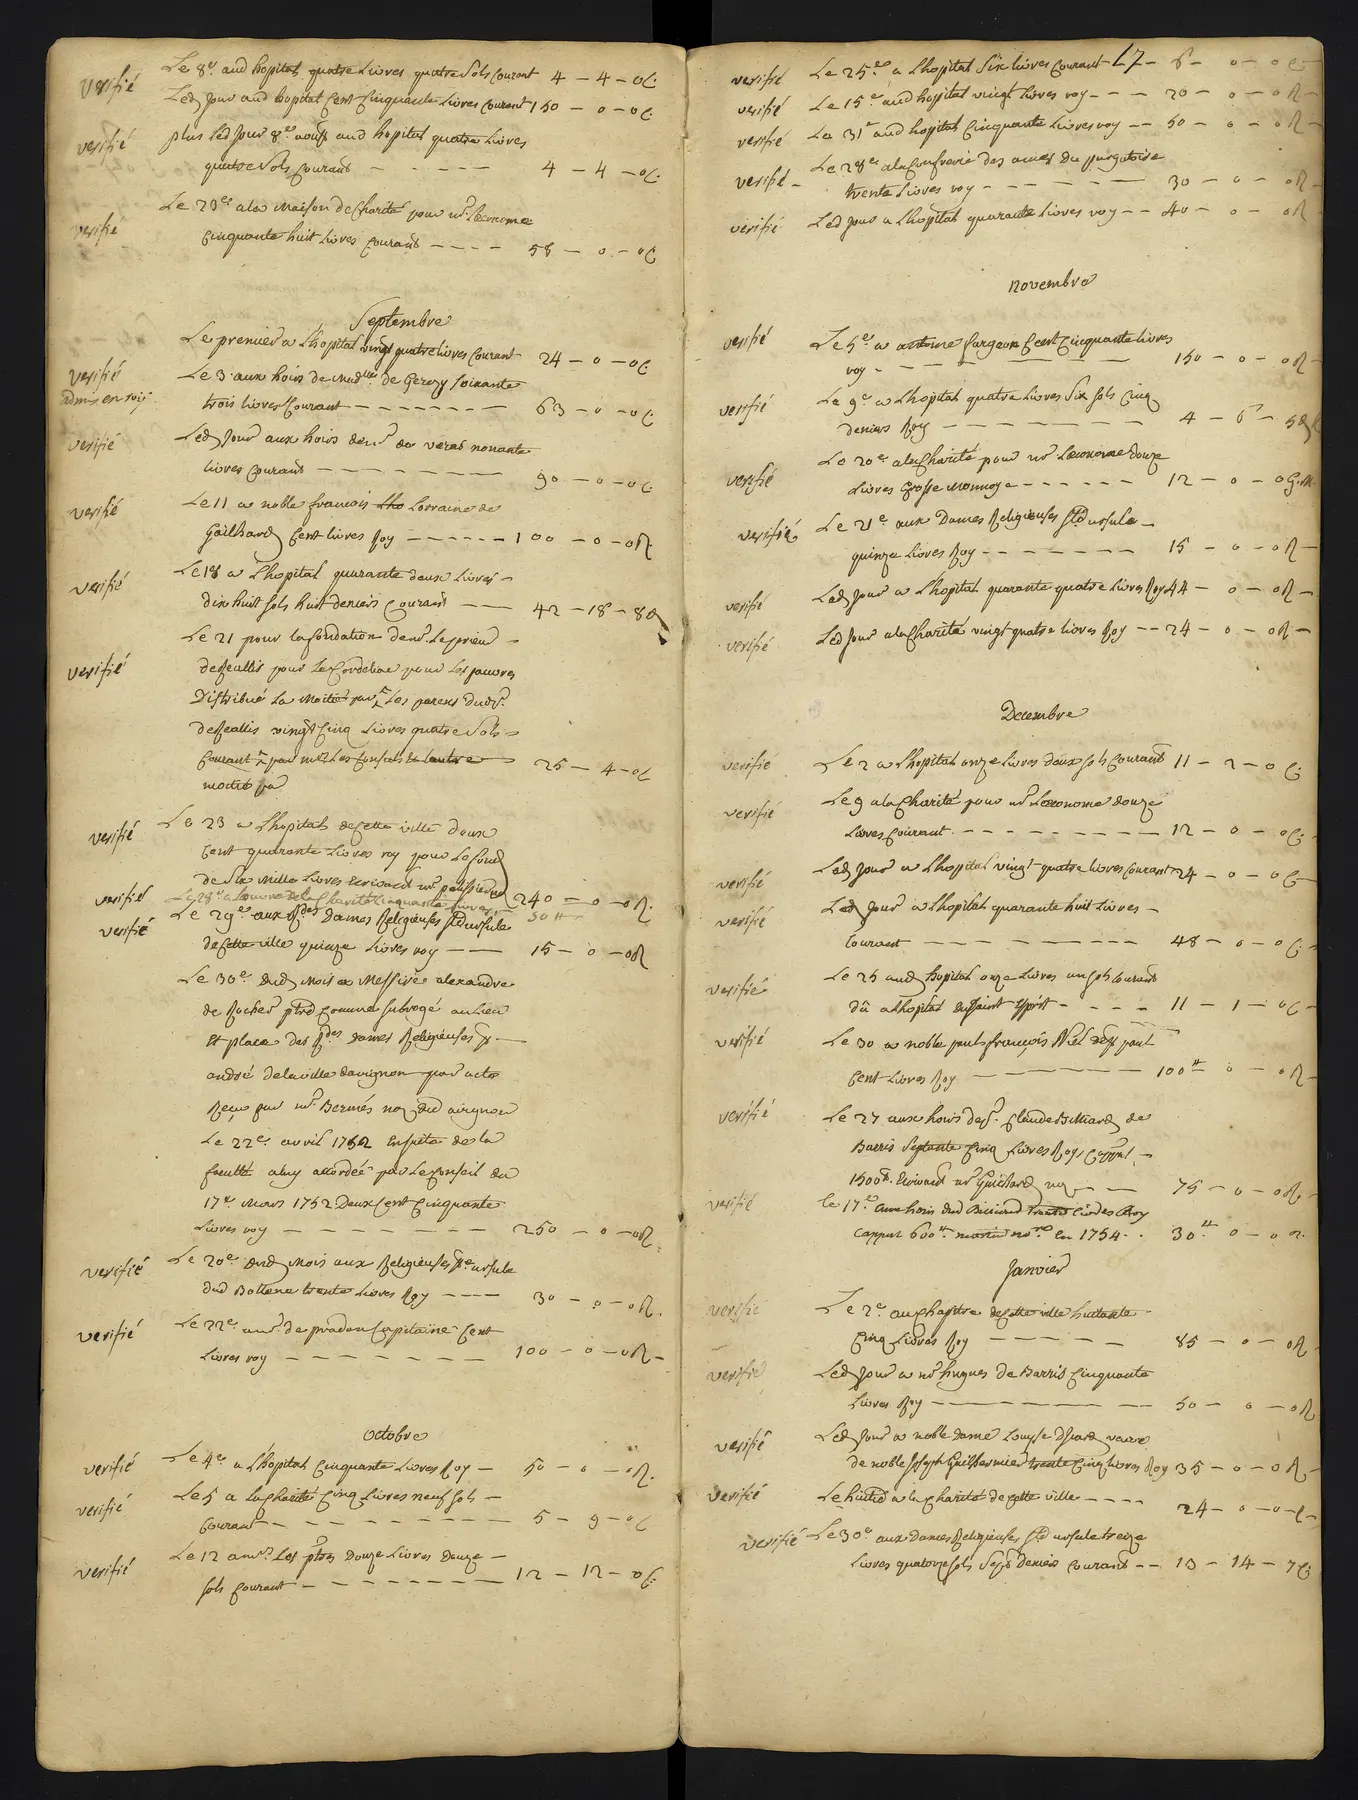 verifié Le 8e. aud hopital quatre Livres quatre Sols Courant 4 – 4 – 0C.
Led Jour aud hopital Cent Cinquante Livres Courant 150 – 0 – 0C
verifié plus led Jour 8e aoust aud hopital quatre Livres
quatre Sols Courant – – – – – 4 – 4 – 0C.
verifié Le 23e a la Maison de Charité pour mr. Leconome
Cinquante huit Livres Courant – – – – 58 – 0 – 0C
Septembre
verifié Le premier a Lhopital vingt quatre livres Courant 24 – 0 – 0C.
admis en roy Le 3 aux hoirs de Mad.lle de Gerozy Soixante
trois livres Courant – – – – – – – 63 – 0 – 0C.
verifié Led Jour aux hoirs de mr de veras nonante
livres Courant – – – – – – – 90 – 0 – 0C.
verifié Le 11 a noble francois Lorraine de
Gailhard Cent livres Roy – – – – – – 100 – 0 – 0R.
verifié Le 18 a Lhopital quarante deux Livres –
dix huit sols huit deniers Courant – – – 42 – 18 – 8
verifié Le 21 pour la fondation de mr. Le prieur –
pour Le Cordelier pour Les pauvres
Distribué La Moitié par Les parens dud Sr.
vingt Cinq Livres quatre Sols –
Courant par mrs Les Consuls & Lautre 25 – 4 – 0C
moitié par
verifié Le 23 a Lhopital de Cette ville deux
Cent quarante Livres roy pour Le fond
de Six mille Livres Ecrivant mr 240 – 0 – 0R.
verifié Le 28e a Loeuvre de la Charité Cinquante Livres 50 tt
verifié Le 29e aux Rdes Dames Religieuses Ste ursule
de Cette ville quinze Livres roy – – – 15 – 0 – 0R
Le 30e dud Mois a Messire alexandre
de Rocher comme subrogé au Lieu
Et place des Rdes Dames Religieuses St –
andré de la ville davignon par acte
Reçu par mr. Bermés nore dud avignon
Le 22e. avril 1752 Ensuite de la
faculté a luy accordée par Le Conseil du
17e. Mars 1752 Deux Cent Cinquante
Livres roy – – – – – – – 250 – 0 – 0R.
verifié Le 20e dud Mois aux Religieuses Ste ursule
dud Bollene trente Livres Roy – – – – 30 – 0 – 0R.
verifié Le 22e. a mr. de pradon Capitaine Cent
Livres roy – – – – – – – 100 – 0 – 0R –
Octobre
verifié Le 4e a Lhopital Cinquante Livres Roy – 50 – 0 – 0R.
verifié Le 5 a La Charité Cinq Livres neuf Sols –
Courant – – – – – – – – 5 – 9 – 0C
verifié Le 12 a mrs. Les ptres Douze Livres Douze –
sols Courant – – – – – – – – 12 – 12 – 0C.
17
verifié Le 25e a Lhopital Six livres Courant – 6 – 0 – 0C –
verifié Le 15e aud hopital vingt Livres roy – – – – 20 – 0 – 0R –
verifié Le 31e aud hopital Cinquante Livres roy – – 50 – 0 – 0R –
verifié – Le 28e a la Confrerie des ames du purgatoire
trente Livres roy – – – – – – 30 – 0 – 0R –
verifié Led Jour a Lhopital quarante Livres roy – – 40 – 0 – 0R –
Novembre
verifié Le 5e a antoine fargeon Cent Cinquante Livres
roy – – – – – – – 150 – 0 – 0R –
verifié Le 9e a Lhopital quatre Livres Six sols Cinq
deniers Roy – – – – – – – – 4 – 6 – 5
verifié Le 20e. a la Charité pour mr Leconome douze
Livres Grosse Monnoye – – – – – – 12 – 0 – 0 G. M.
verifié Le 21e aux Dames Religieuses Ste ursule –
quinze Livres Roy – – – – – – – 15 – 0 – 0R –
verifié Led Jour a Lhopital quarante quatre Livres Roy 44 – 0 – 0R –
verifié Led Jour a la Charité vingt quatre livres Roy – – 24 – 0 – 0R –
Decembre
verifié Le 2 a Lhopital onze Livres deux sols Courant 11 – 2 – 0C.
verifié Le 9 a la Charité pour mr Leconome douze
Livres Courant – – – – – – – – 12 – 0 – 0C.
verifié Led Jour a Lhopital vingt quatre livres Courant 24 – 0 – 0C –
verifié Led Jour a Lhopital quarante huit Livres –
Courant – – – – – – – – 48 – 0 – 0C. –
verifié Le 25 aud hopital onze Livres un sols Courant
dû a Lhopital du Saint Esprit – – – – 11 – 1 – 0C –
verifié Le 30 a noble paul françois
Cent Livres Roy – – – – – – 100tt 0 – 0R –
verifié Le 27 aux hoirs de Sr. Claude Billiard de
Barris Septante Cinq Livres Roy Cappal –
1500tt. Ecrivant mr Guillard nore – – – 75 – 0 – 0R. –
verifié le 17e aux hoirs dud Billiard trente Livres Roy
Cappal 600tt. nore. En 1754 . . 30tt 0 – 0 R.
Janvier
verifié Le 2e au Chapitre de Cette ville huitante –
Cinq Livres Roy – – – – – – 85 – 0 – 0R –
verifié Led Jour a mr hugues de Barris Cinquante
Livres Roy – – – – – – – – 50 – 0 – 0R
verifié Led Jour a noble dame Louyse veuve
de noble Joseph Guilhermier trente Cinq Livres Roy 35 – 0 – 0R –
verifié Le huitie a la Charité de Cette ville – – – – 24 – 0 – 0C –
verifié Le 30e aux Dames Religieuses Ste ursule treize
Livres quatorze sols Sept Deniers Courant – – 13 – 14 – 7C.